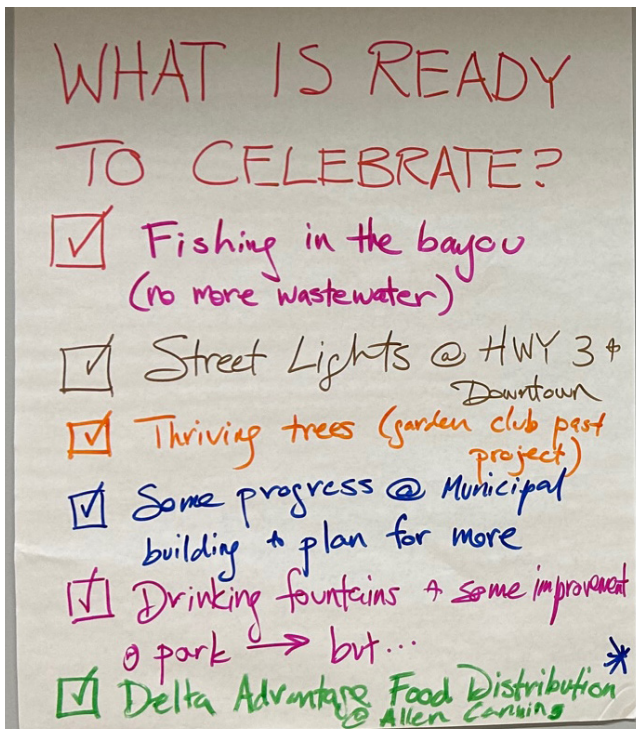 WHAT IS READY
TO CELEBRATE?
Fishing in the bayou
(no more wastewater)
Street Lights @ HWY 3 +
Downtown
Thriving trees (garden club past
project)
Some progress @ Municipal
building + plan for more
Drinking fountains + some improvement
@ park → but...
*
Delta Advantage Food Distribution
@ Allen Canning